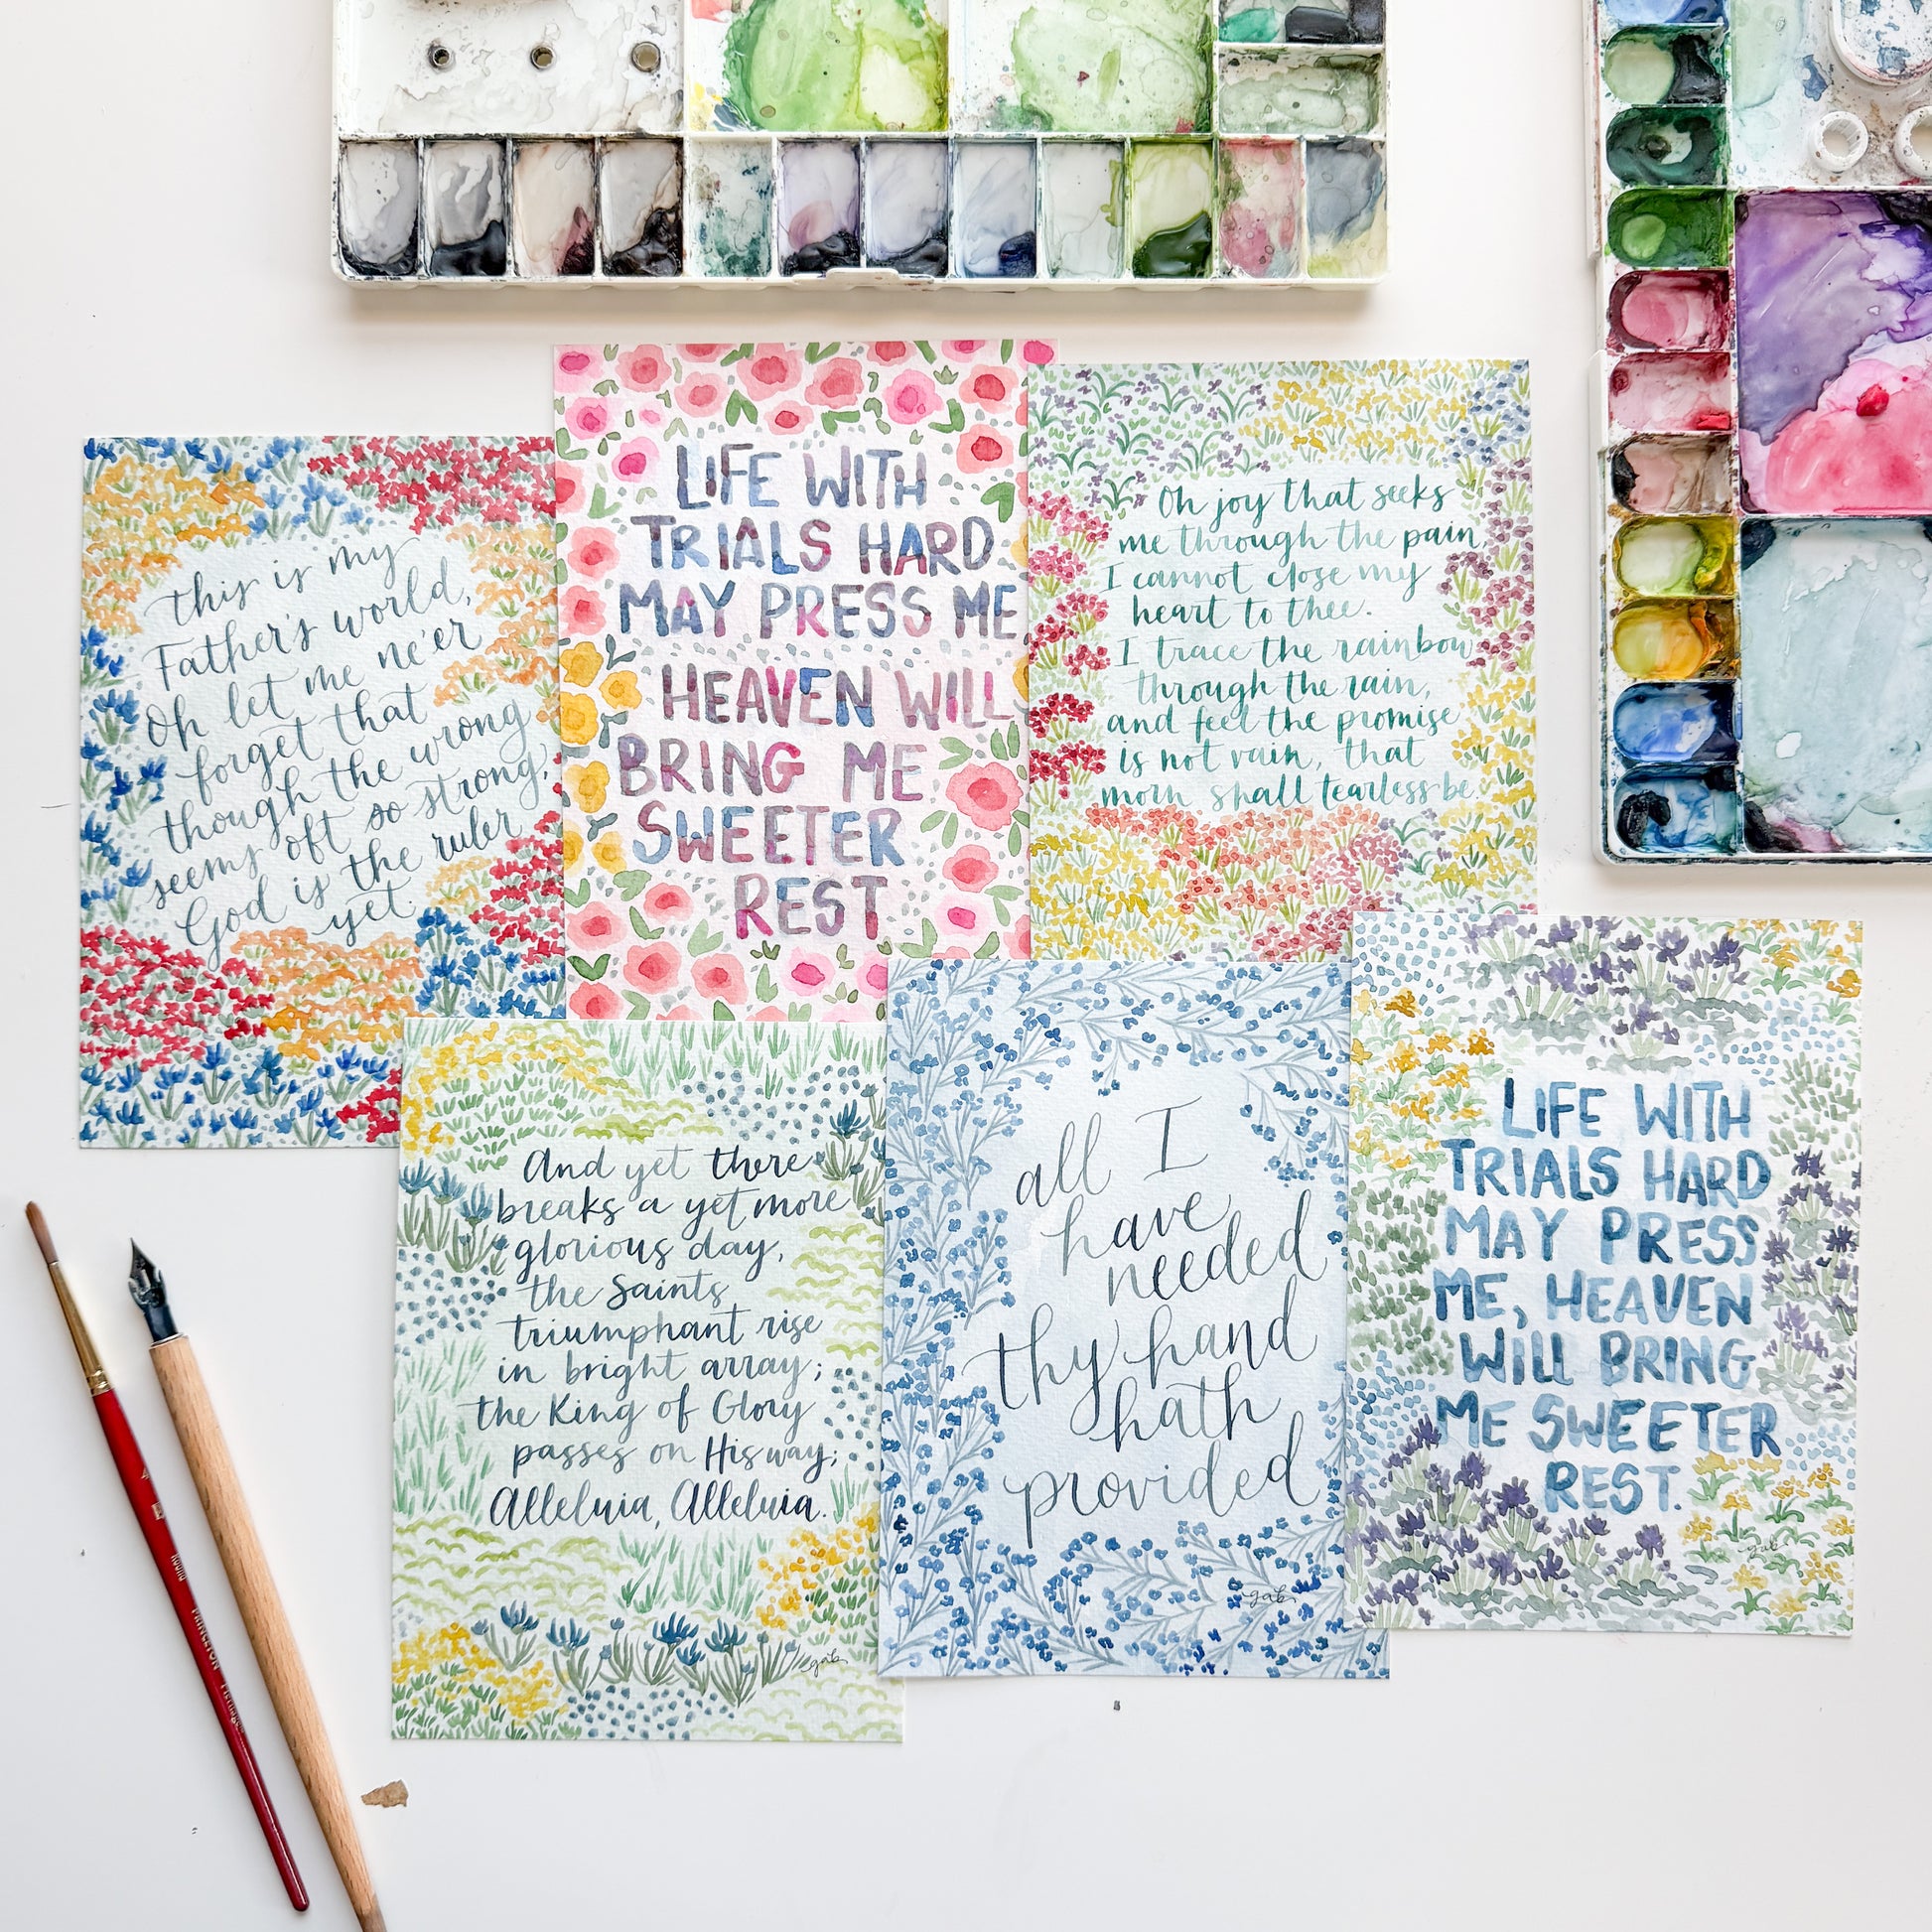 this is my
Father's world,
Oh let me ne'er
forget that
though the wrong
seems oft so strong,
God is the ruler
yet.
LIFE WITH
TRIALS HARD
MAY PRESS ME,
HEAVEN WILL
BRING ME
SWEETER
REST
Oh joy that seeks
me through the pain,
I cannot close my
heart to thee.
I trace the rainbow
through the rain,
and feel the promise
is not vain, that
morn shall tearless be.
And yet there
breaks a yet more
glorious day,
the Saints
triumphant rise
in bright array;
the King of Glory
passes on His way;
Alleluia, Alleluia.
gab
all I
have
needed
thy hand
hath
provided
gab
LIFE WITH
TRIALS HARD
MAY PRESS
ME, HEAVEN
WILL BRING
ME SWEETER
REST.
gab
4
ROUND
PRINCETON